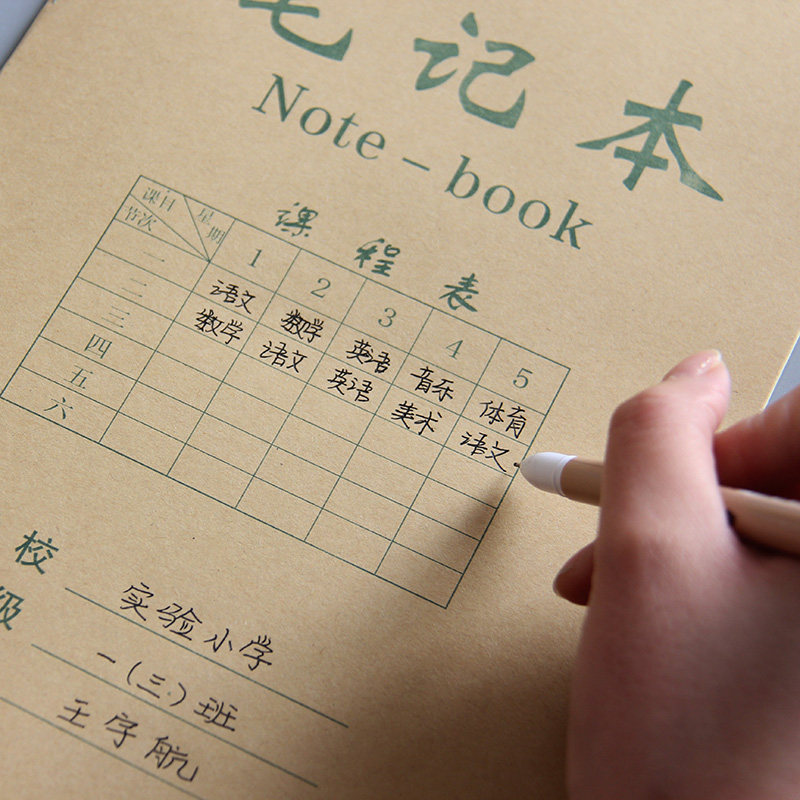 笔记本
Note-book
课程表
课目 星期 节次 1 2 3 4 5
一 语文 数学 英语 音乐 体育
二 数学 语文 英语 美术 语文
三
四
五
六
校 实验小学
级 一(三)班
王宇航